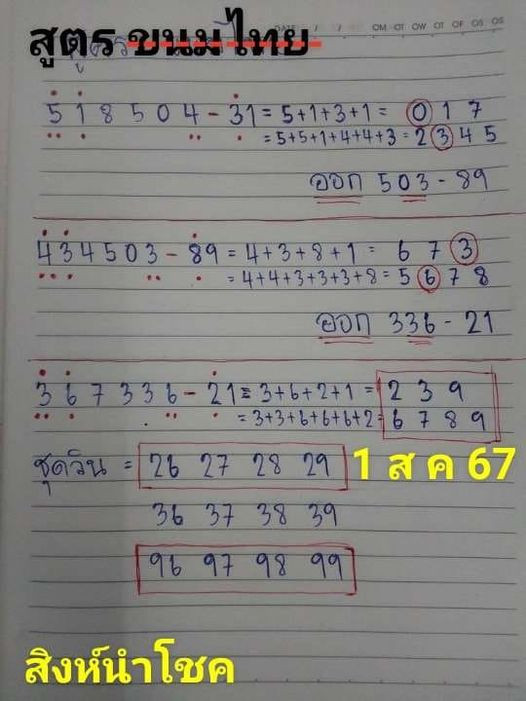 สูตร ขนมไทย
DATE / / OM OT OW OT OF OS OS
518504 - 31 = 5+1+3+1 = 0 1 7
= 5+5+1+4+4+3 = 2 3 4 5
ออก 503 - 89
434503 - 89 = 4+3+8+1 = 6 7 3
= 4+4+3+3+3+8 = 5 6 7 8
ออก 336 - 21
367336 - 21 = 3+6+2+1 = 2 3 9
= 3+3+6+6+6+2 = 6 7 8 9
ชุดวิน = 26 27 28 29 1 ส ค 67
36 37 38 39
96 97 98 99
สิงห์นำโชค